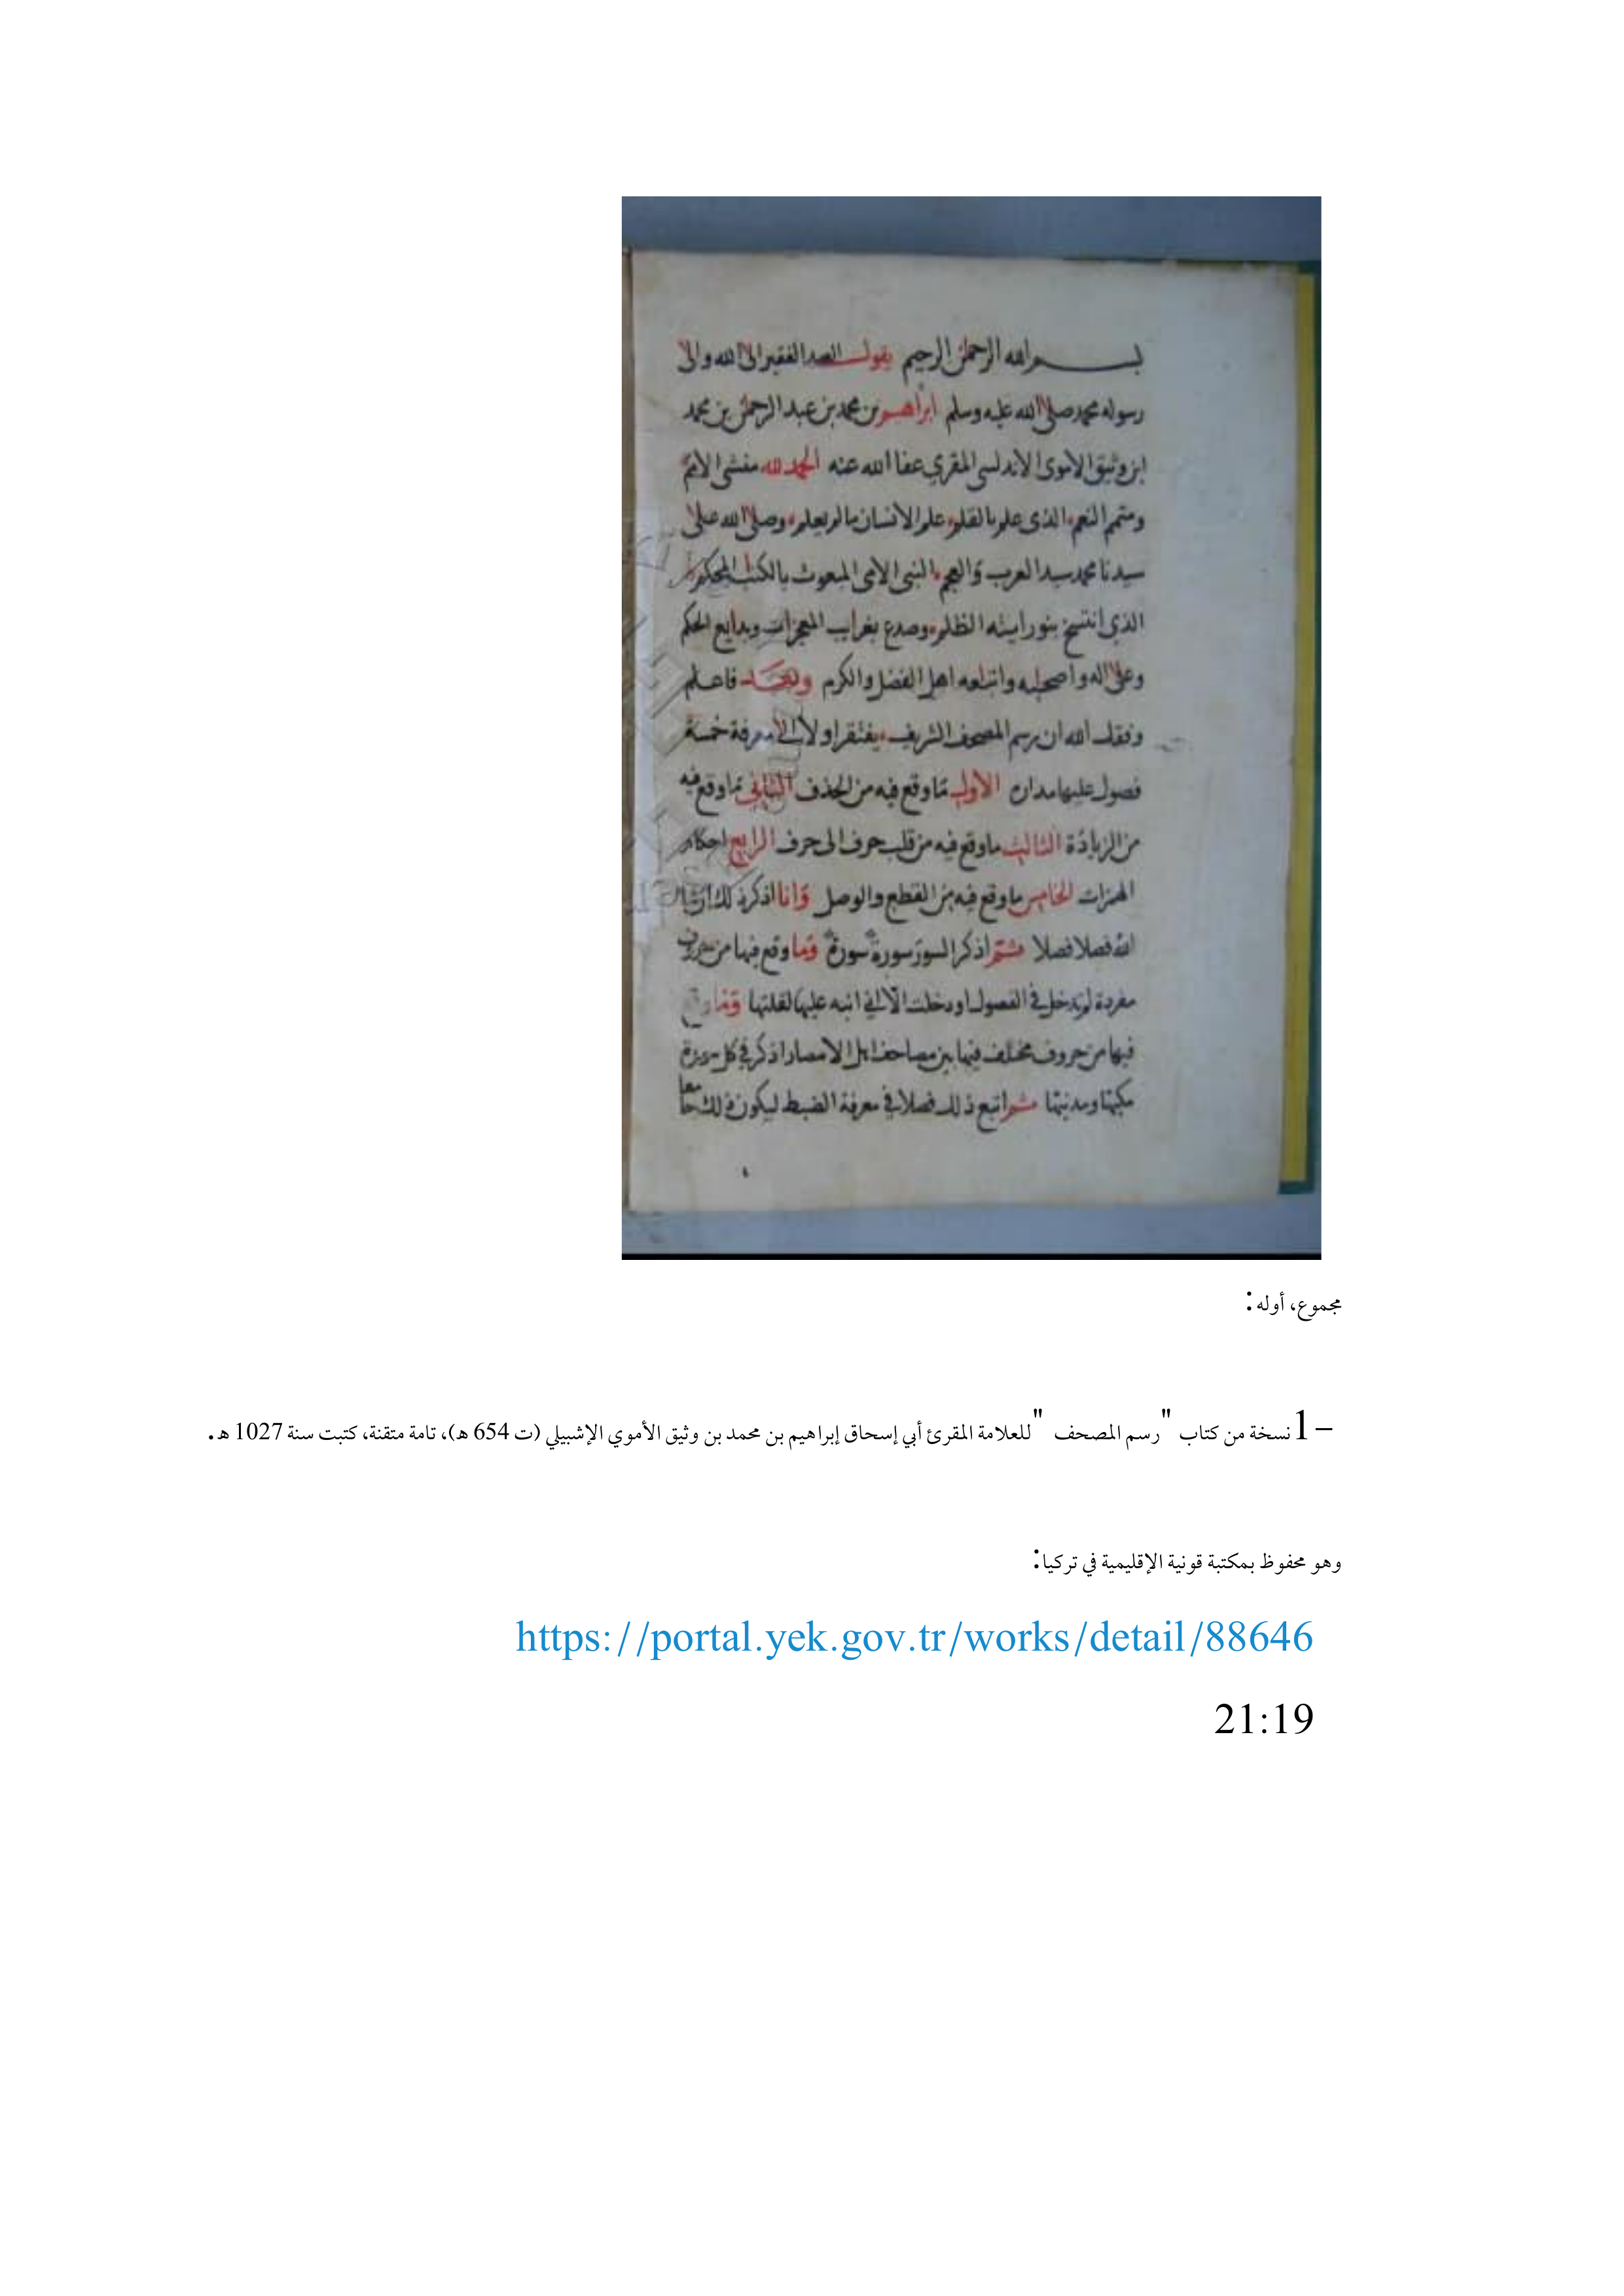 بسم الله الرحمن الرحيم يقول العبد الفقير الى الله والى
رسوله محمد صلى الله عليه وسلم ابراهيم بن محمد بن عبد الرحمن بن محمد
ابن وثيق الاموى الاندلسى المقرى عفا الله عنه الحمد لله منشى الامم
ومتمم النعم الذى علم بالقلم علم الانسان مالم يعلم وصلى الله على
سيدنا محمد سيد العرب والعجم النبى الامى المبعوث بالكتب المحكم
الذى انتسخ بنور ايته الظلم وصدع بغرايب المعجزات وبدايع الحكم
وعلى اله واصحبه واتباعه اهل الفضل والكرم وبعد فاعلم
وفقك الله ان رسم المصحف الشريف يفتقر اولا الى معرفة خمسة
فصول عليها مداره الاول ما وقع فيه من الحذف الثانى ما وقع فيه
من الزيادة الثالث ما وقع فيه من قلب حرف الى حرف الرابع احكام
الهمزات الخامس ما وقع فيه من القطع والوصل وانا اذكر ذلك ان شا
الله فصلا فصلا ثم اذكر السور سورة سورة وما وقع فيها من حروف
مفردة لم تدخل فى الفصول او دخلت الا انى انبه عليها لقلتها وما وقع
فيها من حروف مختلف فيها بين مصاحف اهل الامصار اذكر فى كل سورة
مكيتها ومدنيتها ثم اتبع ذلك فصلا فى معرفة الضبط ليكون ذلك جامعا
مجموع، أوله:
1- نسخة من كتاب "رسم المصحف" للعلامة المقرئ أبي إسحاق إبراهيم بن محمد بن وثيق الأموي الإشبيلي (ت 654 هـ)، تامة متقنة، كتبت سنة 1027 هـ.
وهو محفوظ بمكتبة قونية الإقليمية في تركيا:
https://portal.yek.gov.tr/works/detail/88646
21:19